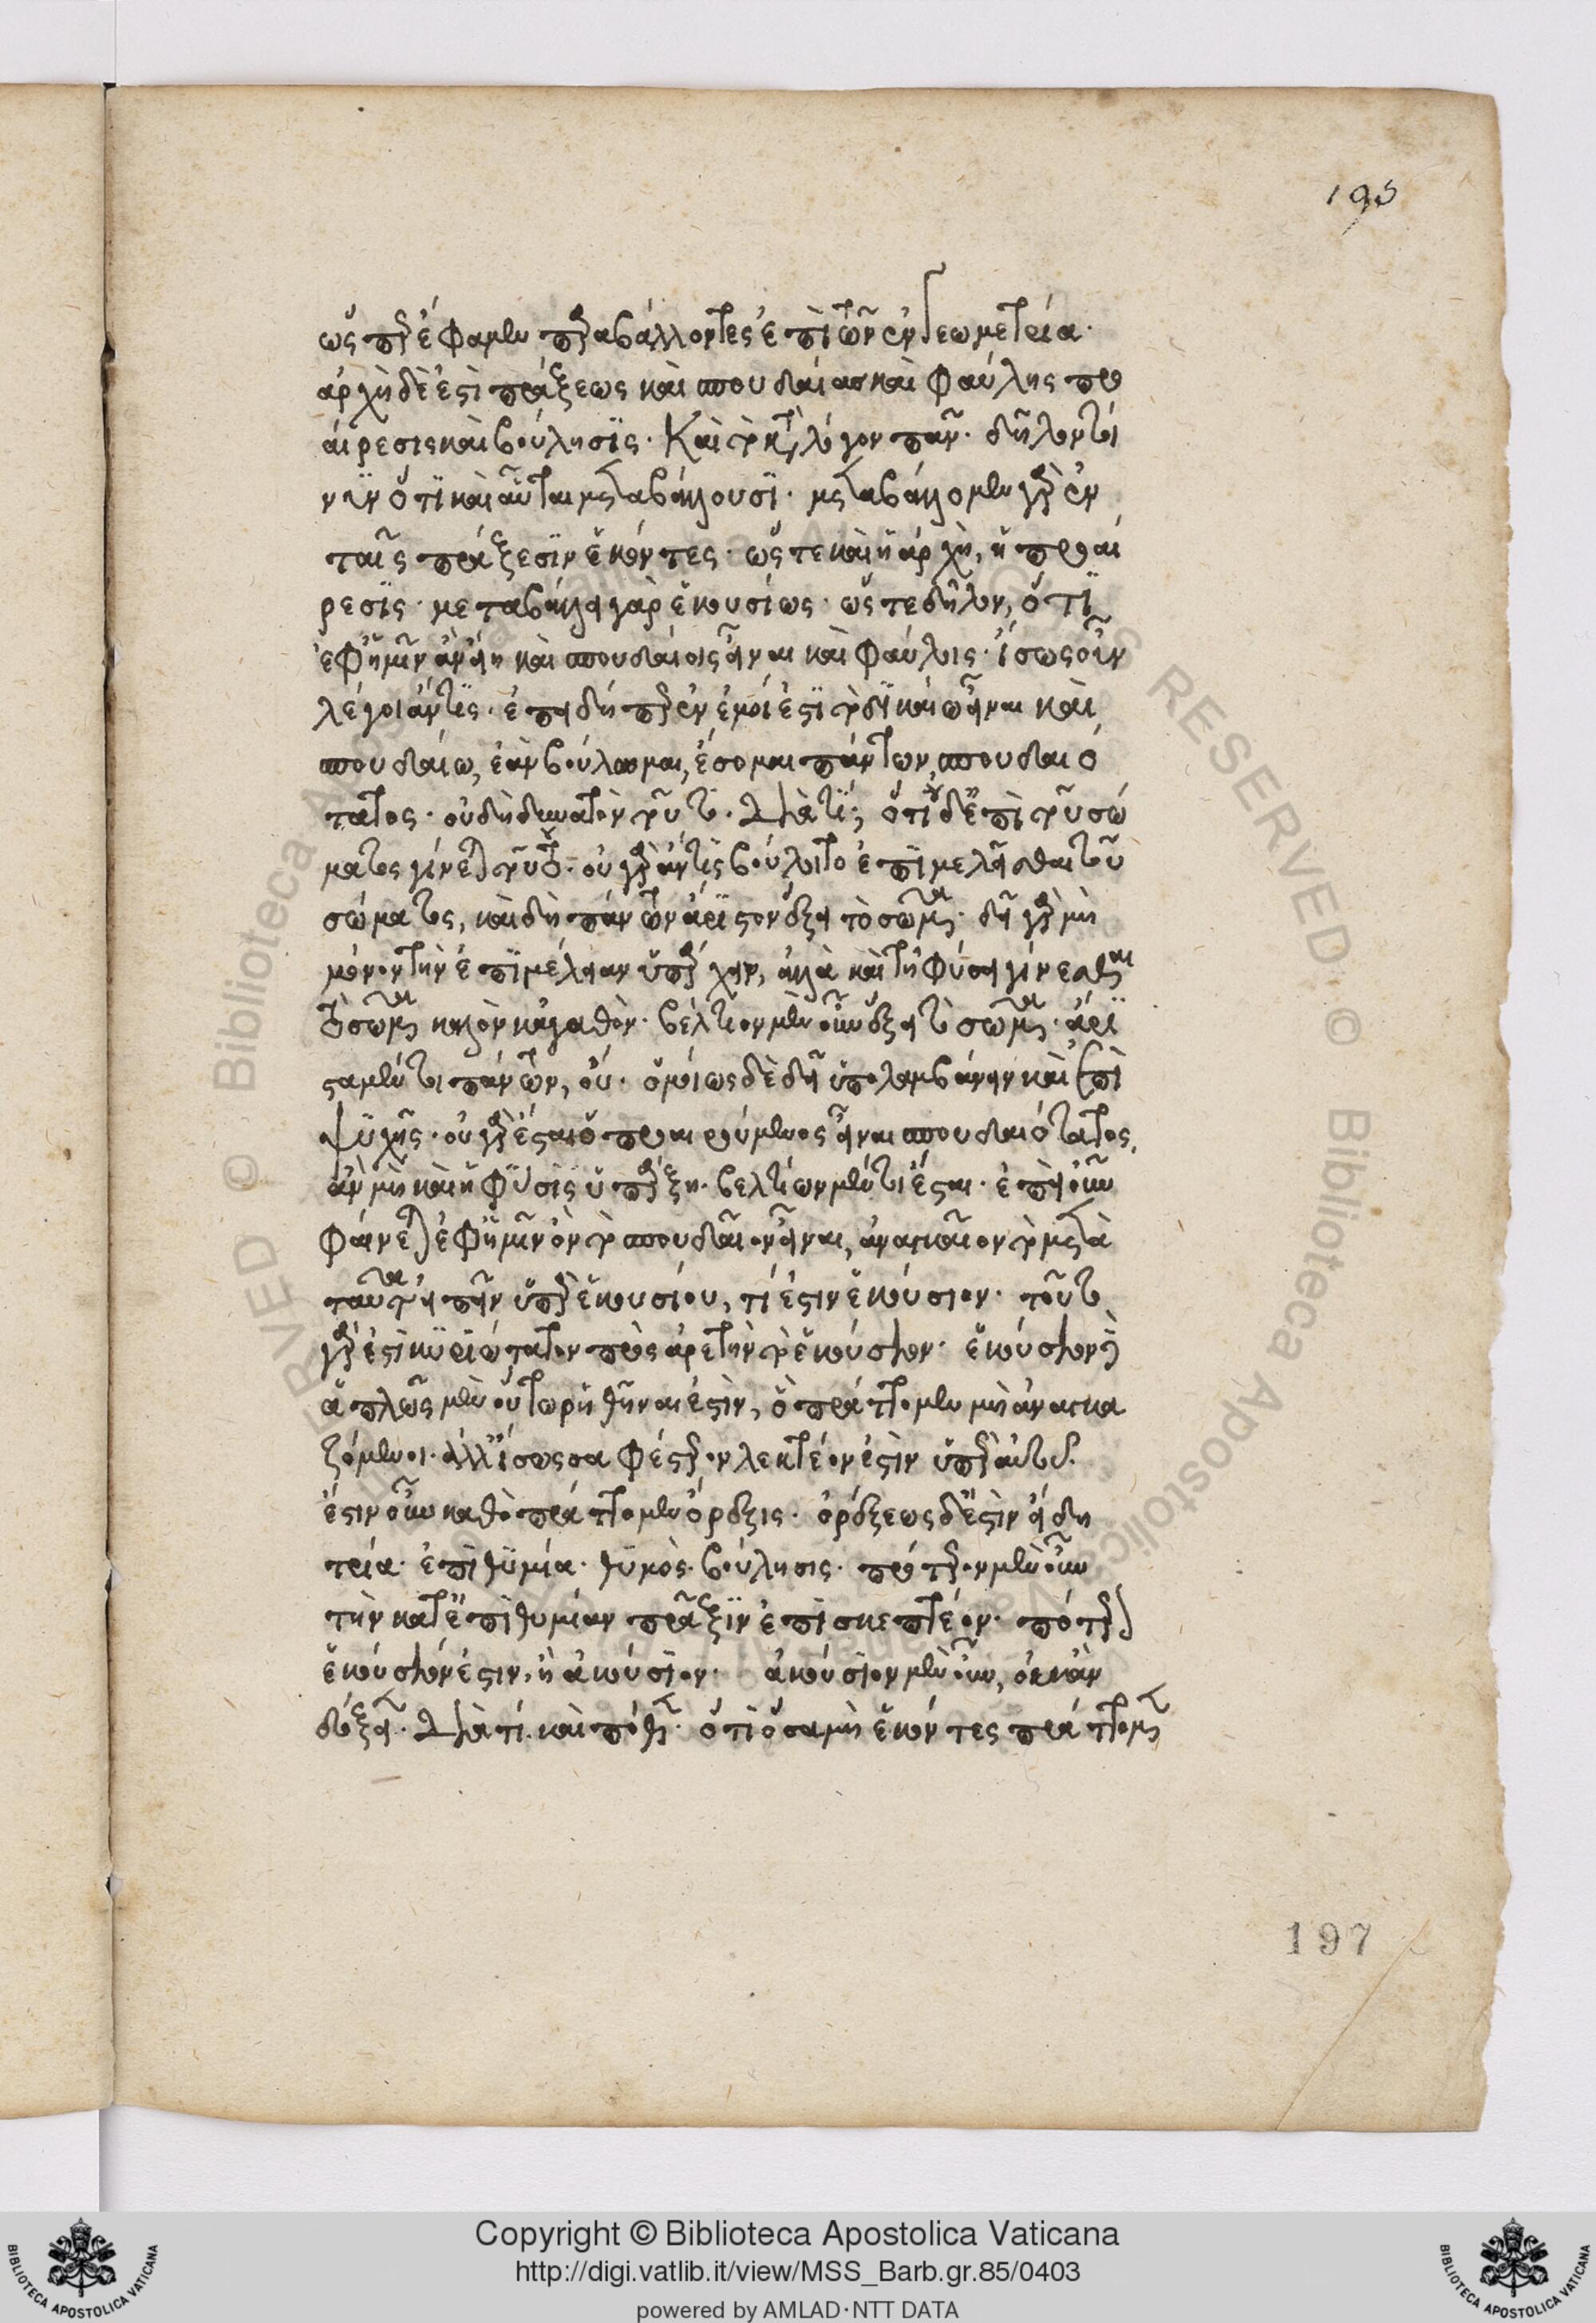 ὥσπερ ἔφαμεν παραβάλλοντες ἐπὶ τῶν ἐν γεωμετρία·
ἀρχὴ δὲ ἐστὶ πράξεως καὶ σπουδαίας καὶ φαύλης προ
αίρεσις καὶ βούλησϊς· Καὶ τὸ κατὰ λόγον πᾶν· δῆλον τοί
νϋν ὅτϊ καὶ αὗται μεταβάλλουσϊ· μεταβάλλομεν γὰρ ἐν
ταῖς πράξεσϊν ἑκόντες· ὥστε καὶ ἡ ἀρχὴ, ἡ προαί
ρεσϊς· μεταβάλλει γὰρ ἑκουσίως· ὥστε δῆλον, ὅτϊ
ἐφ' ἡμῖν ἂν εἴη καὶ σπουδαίοις εἶναι καὶ φαύλοις· ἴσως οὖν
λέγοι ἄν τϊς· ἐπειδήπερ ἐν ἐμοί ἐστϊ τὸ δϊκαίω εἶναι καὶ
σπουδαίω, ἐὰν βούλωμαι, ἔσομαι πάντων σπουδαιό
τατος· οὐ δὴ δυνατὸν τοῦτο. Διὰ τί; ὅτι οὐδ' ἐπὶ τοῦ σώ
ματος γίνεται τοῦτο· οὐ γὰρ ἄν τϊς βούλοιτο ἐπϊμελεῖσθαι τοῦ
σώματος, καὶ δὴ πάντων ἄρϊστον ἕξει τὸ σῶμα· δεῖ γὰρ μὴ
μόνον τὴν ἐπϊμέλειαν ὑπάρχειν, ἀλλὰ καὶ τῇ φύσει γίνεσθαι
τὸ σῶμα καλὸν κἀγαθὸν· βέλτιον μὲν οὖν ἕξει τὸ σῶμα· ἄρϊ
στα μέντοι πάντων, οὔ. ὁμοίως δὲ δεῖ ὑπολαμβάνειν καὶ ἐπὶ
ψϋχῆς· οὐ γὰρ ἔσται ὁ προαιρούμενος εἶναι σπουδαιότατος,
ἂν μὴ καὶ ἡ φύσϊς ὑπάρξη· βελτίων μέντοι ἔσται· ἐπεὶ οὖν
φαίνεται ἐφ' ἡμῖν ὂν τὸ σπουδαῖον εἶναι, ἀναγκαῖον τὸ μετὰ
ταῦτα εἰπεῖν ὑπὲρ ἑκουσίου, τί ἐστιν ἑκούσιον· τοῦτο
γάρ ἐστι κϋρϊώτατον πρὸς ἀρετὴν τὸ ἑκούσιον· ἑκούσιον δὲ
ἁπλῶς μὲν οὕτω ρηθῆναι ἐστὶν, ὃ πράττομεν μὴ ἀναγκα
ζόμενοι· ἀλλ' ἴσως σαφέστερον λεκτέον ἐστὶν ὑπὲρ αὐτοῦ.
ἔστιν οὖν καθὸ πράττομεν ὄρεξις· ὀρέξεως δ' ἐστὶν εἴδη
τρία· ἐπϊθϋμία· θϋμὸς· βούλησις· πρότερον μὲν οὖν
τὴν κατ' ἐπϊθυμίαν πρᾶξϊν ἐπϊσκεπτέον· πότερον
ἑκούσιόν ἐστιν, ἢ ἀκούσϊον· ἀκούσϊον μὲν οὖν, οὐκ ἂν
δόξειε· Διὰ τί. καὶ πόθεν· ὅτϊ ὅσα μὴ ἑκόντες πράττομεν
195
197
Copyright © Biblioteca Apostolica Vaticana
http://digi.vatlib.it/view/MSS_Barb.gr.85/0403
powered by AMLAD·NTT DATA